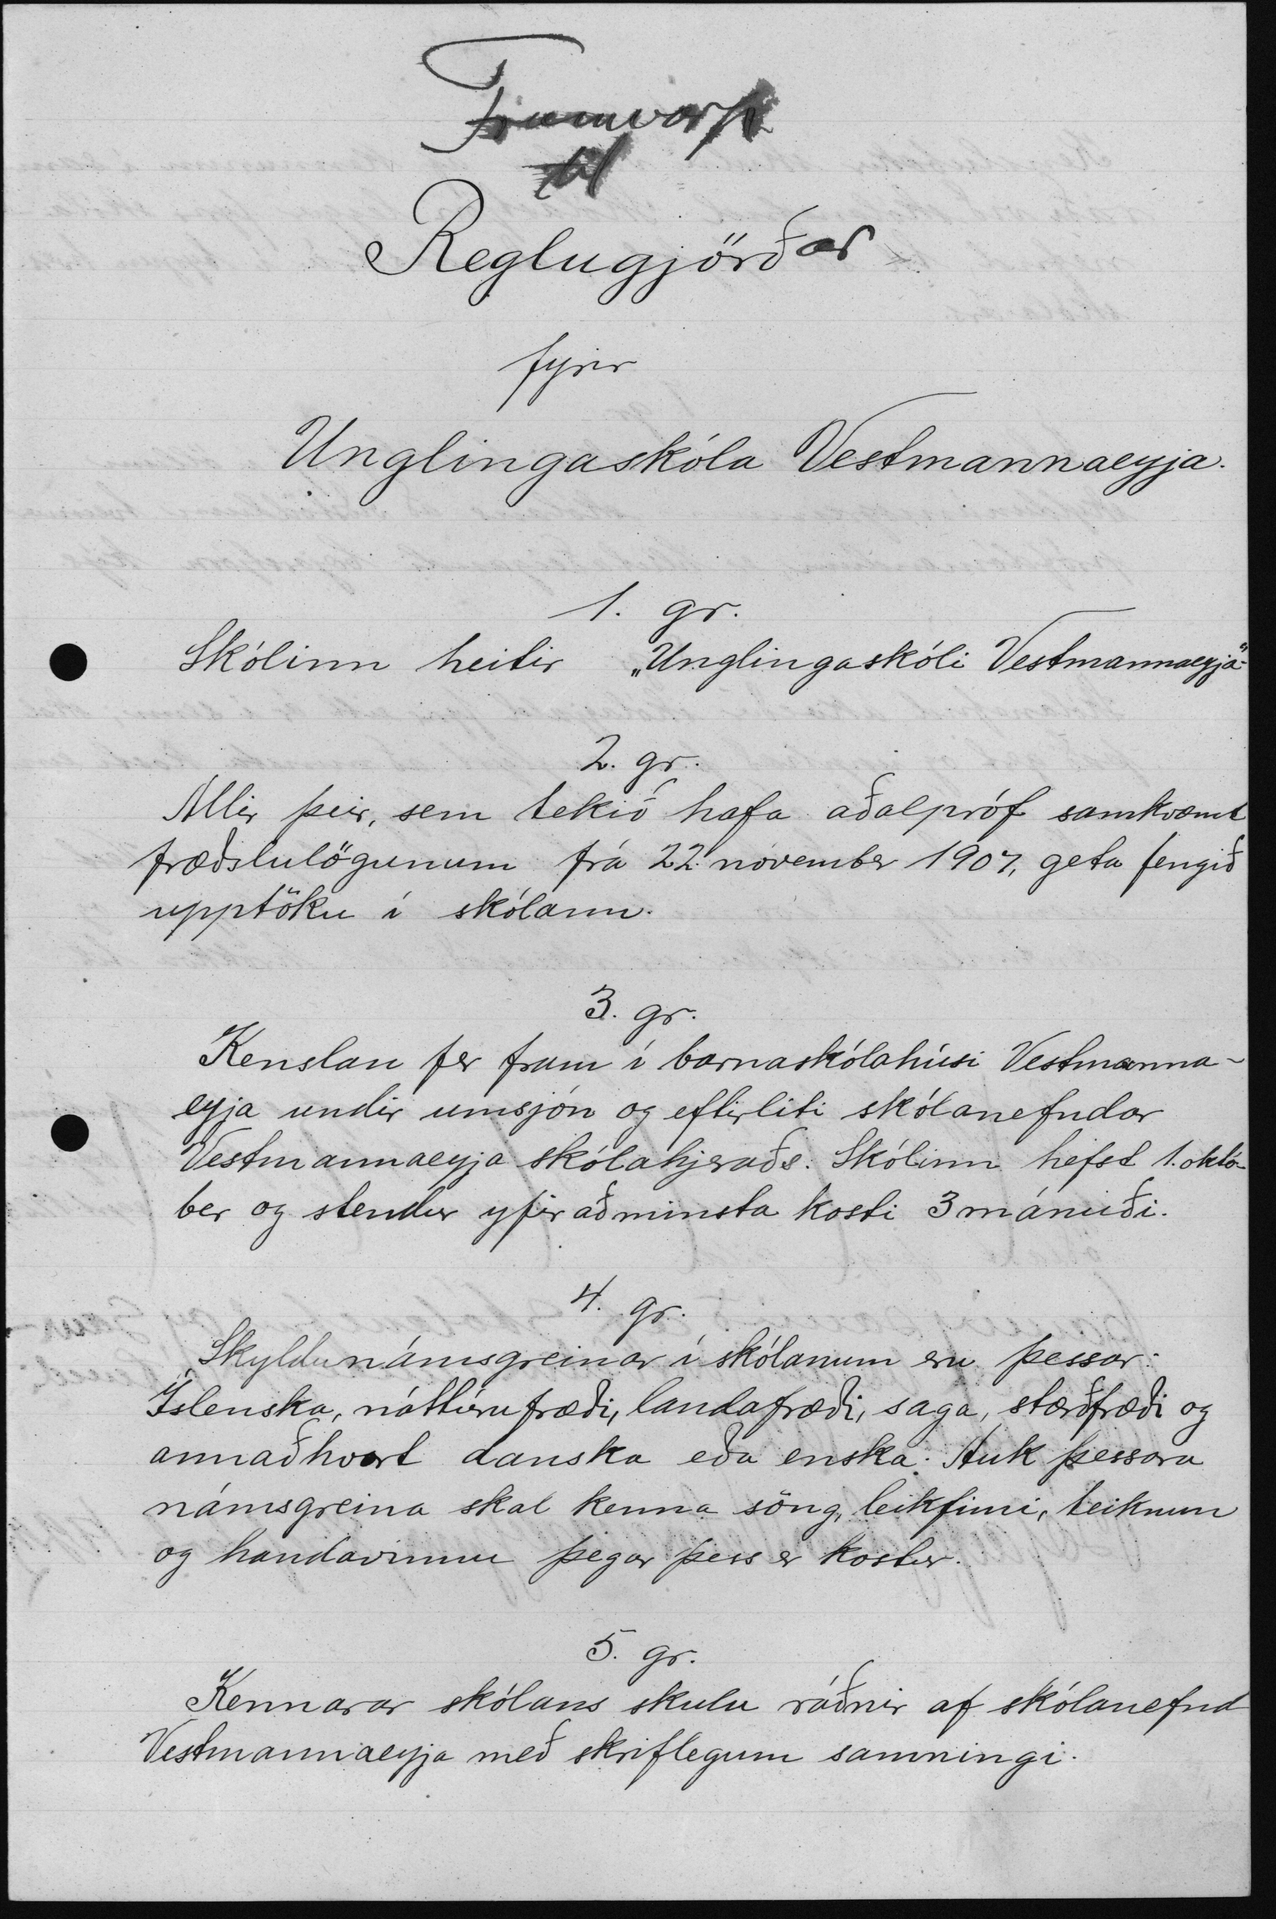 Frumvarp
til
Reglugjörðar
fyrir
Unglingaskóla Vestmannaeyja.
1. gr.
Skólinn heitir „Unglingaskóli Vestmannaeyja“.
2. gr.
Allir þeir, sem tekið hafa aðalpróf samkvæmt
fræðslulögunum frá 22. nóvember 1907, geta fengið
upptöku í skólann.
3. gr.
Kenslan fer fram í barnaskólahúsi Vestmanna-
eyja undir umsjón og eftirliti skólanefndar
Vestmannaeyja skólahjeraðs. Skólinn hefst 1. októ-
ber og stendur yfir að minsta kosti 3 mánuði.
4. gr.
Skyldunámsgreinar í skólanum eru þessar:
Íslenska, náttúrufræði, landafræði, saga, stærðfræði og
annaðhvort danska eða enska. Auk þessara
námsgreina skal kenna söng, leikfimi, teiknun
og handavinnu þegar þess er kostur.
5. gr.
Kennarar skólans skulu ráðnir af skólanefnd
Vestmannaeyja með skriflegum samningi.